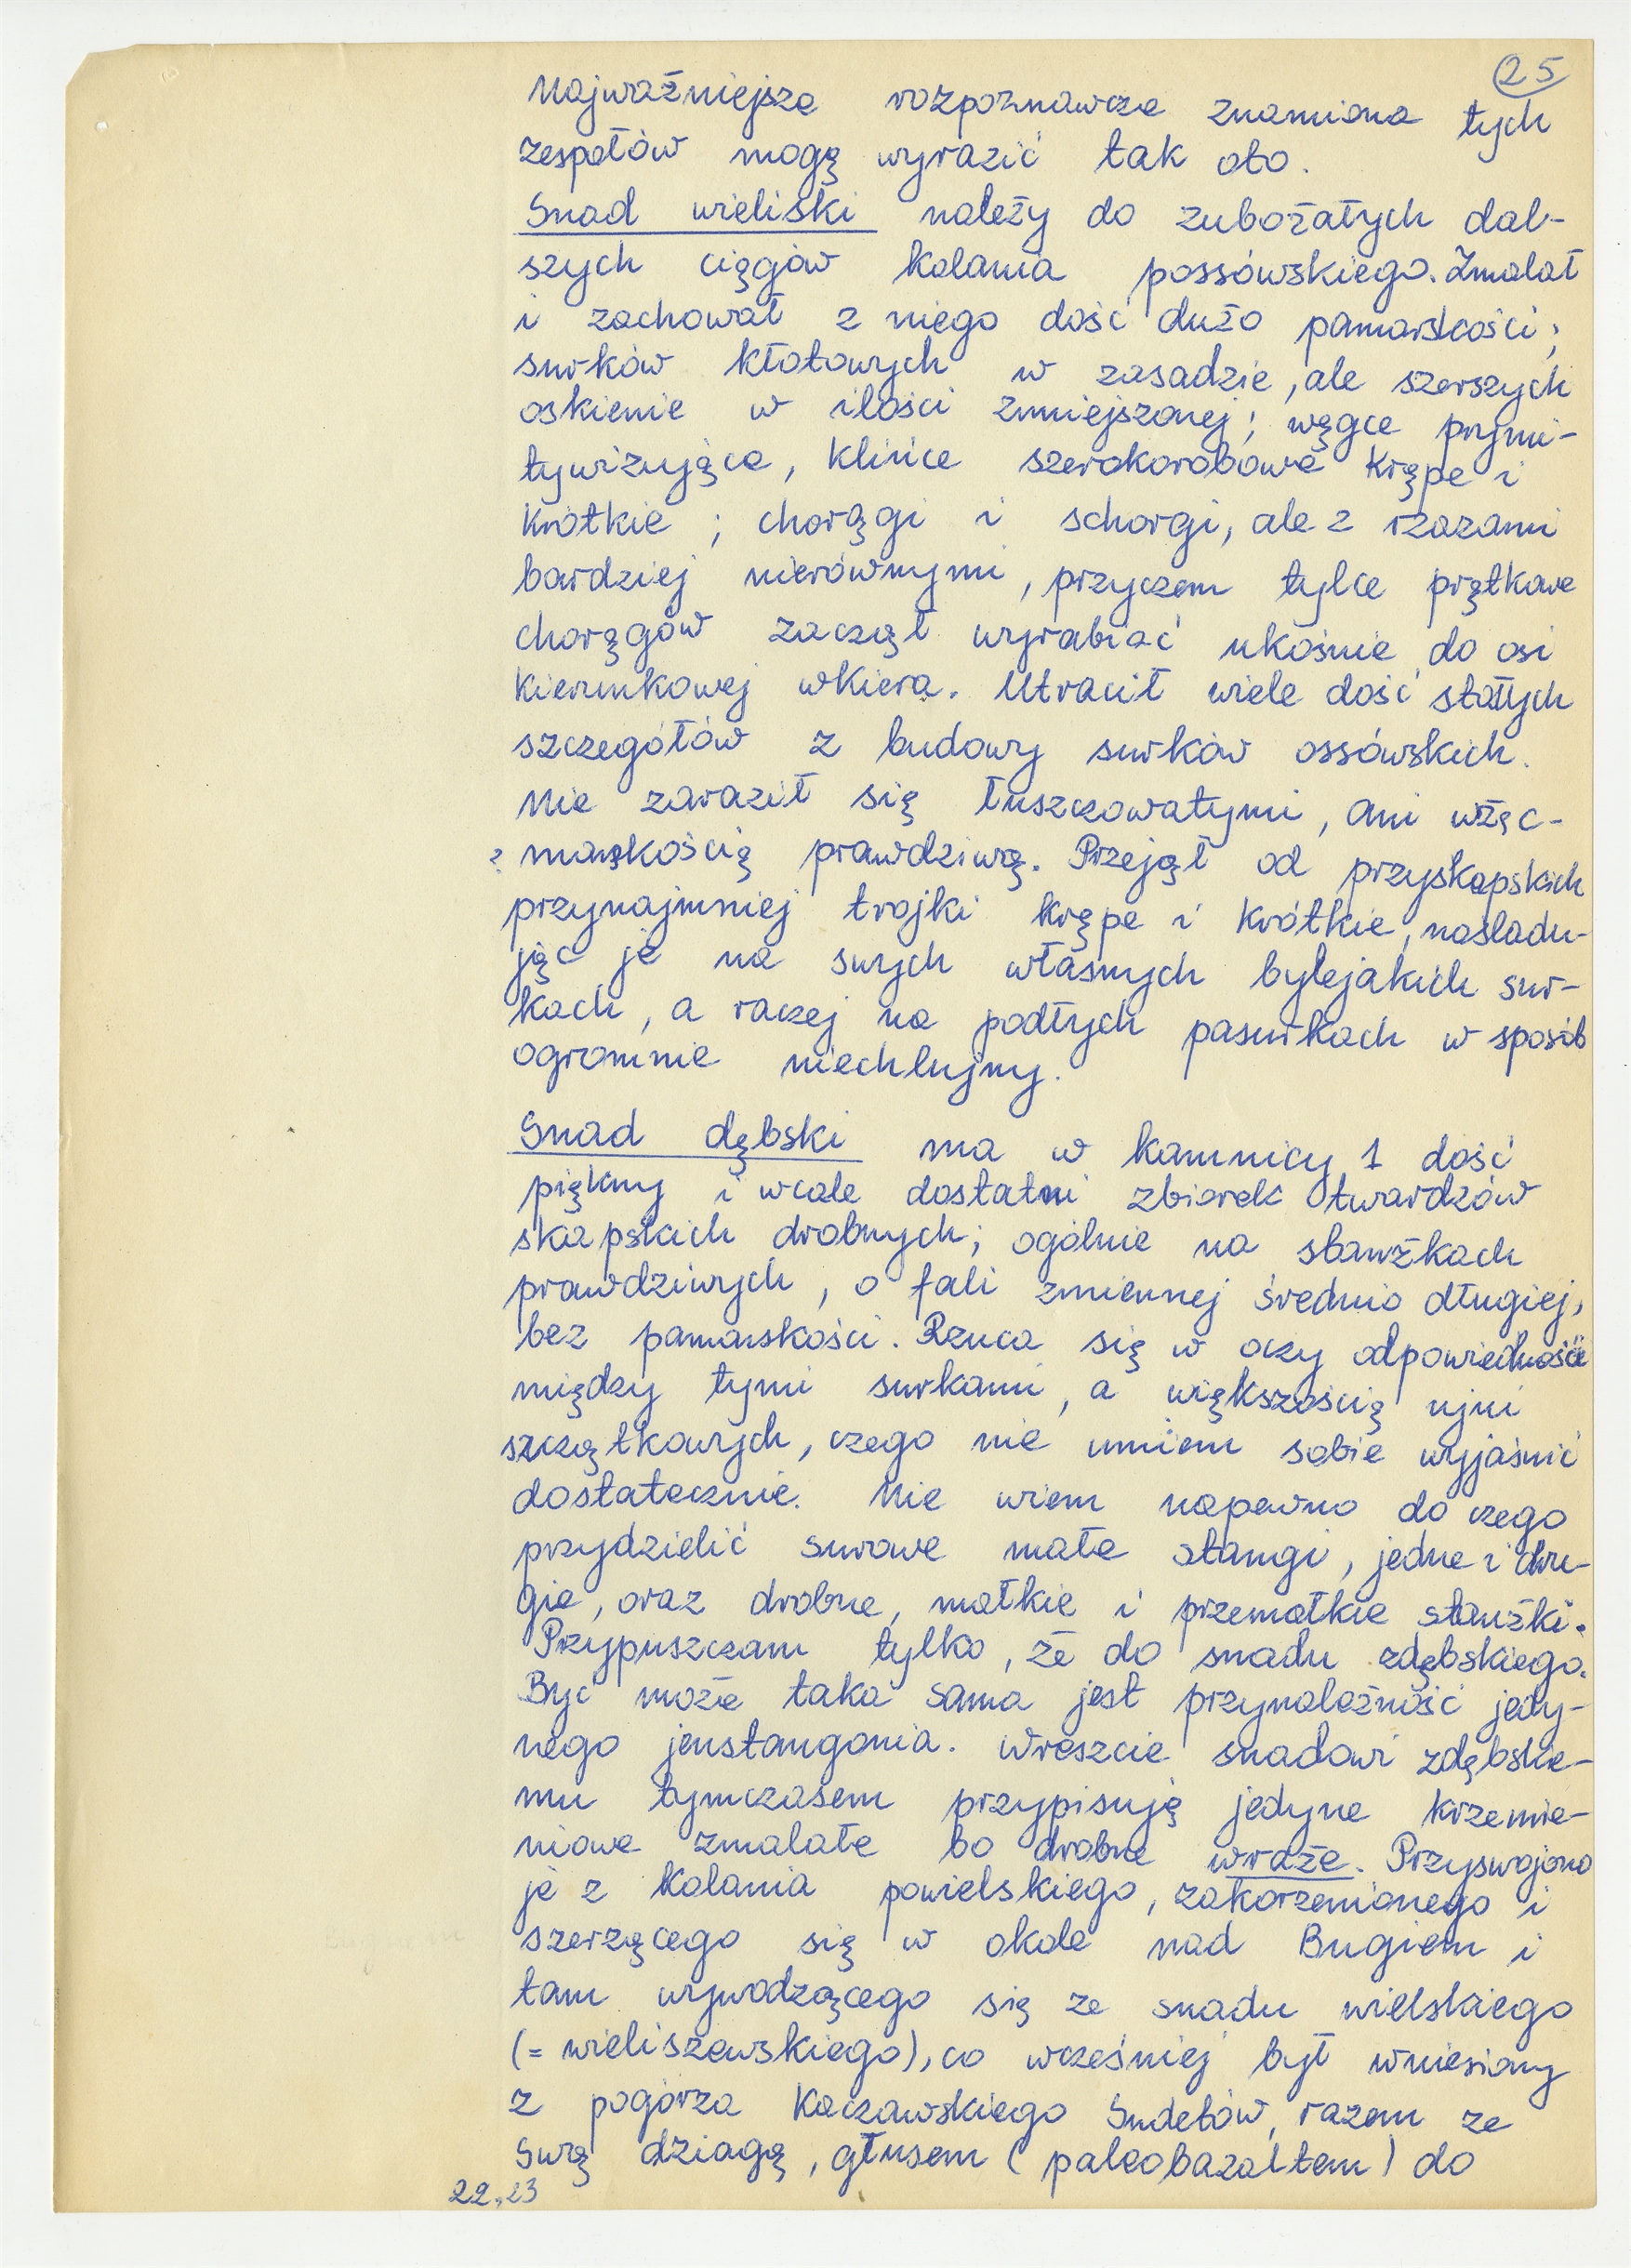 25
Najważniejsze rozpoznawcze znamiona tych
zespołów mogę wyrazić tak oto.
Snad wieliski należy do zubożałych dal-
szych ciągów kolania possówskiego. Zmalał
i zachował z niego dość dużo pamarskości;
surków kłotowych w zasadzie, ale szerszych
oskienie w ilości zmniejszonej; węgce prymi-
tywizujące, klińce szerokorobowe krępe i
krótkie ; chorągi i schorgi, ale z rzazami
bardziej nierównymi, przyczem tylce prątkowe
chorągów zaczął wyrabiać ukośnie do osi
kierunkowej wkiera. Utracił wiele dość stałych
szczegółów z budowy surków ossówskich.
Nie zaraził się tuszczowatymi, ani wżąc-
? marskością prawdziwą. Przejął od przyskapskich
przynajmniej trojki krępe i krótkie, naśladu-
jąc je na swych własnych bylejakich sur-
kach, a raczej na podłych pasurkach w sposób
ogromnie niechlujny.
Snad dębski ma w kamnicy 1 dość
piękny i wcale dostatni zbiorek twardzów
skapskich drobnych; ogólnie na stawżkach
prawdziwych, o fali zmiennej średnio długiej,
bez pamarskości. Rzuca się w oczy odpowiedniość
między tymi surkami, a większością ujni
szczątkowych, czego nie umiem sobie wyjaśnić
dostatecznie. Nie wiem napewno do czego
przydzielić surowe małe stangi, jedne i dru-
gie, oraz drobne, małkie i przemałkie stanżki.
Przypuszczam tylko, że do snadu zdębskiego.
Być może taka sama jest przynależność jedy-
nego jenstangania. Wreszcie snadowi zdębskie-
mu tymczasem przypisuję jedyne krzemie-
niowe zmalałe bo drobne wraże. Przyswojono
je z kolania powielskiego, zakorzenionego i
szerzącego się w okole nad Bugiem i
tam wywodzącego się ze snadu wielskiego
(= wieliszewskiego), co wcześniej był wniesiony
z pogórza Kaczawskiego Sudetów, razem ze
swą dziagą, głusem (paleobazaltem) do
22,23